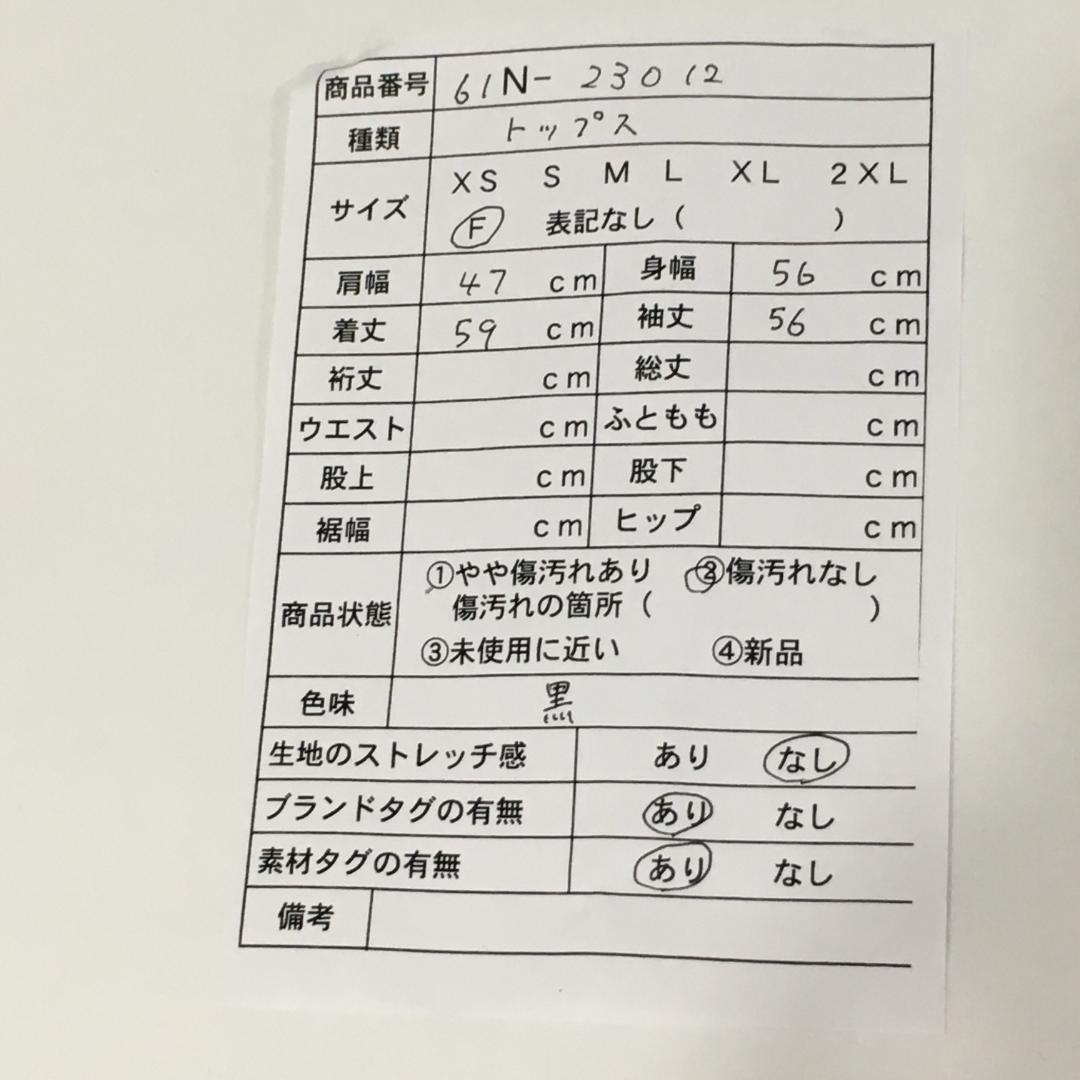 商品番号 61N-23012
種類 トップス
サイズ XS S M L XL 2XL
F 表記なし( )
肩幅 47 cm 身幅 56 cm
着丈 59 cm 袖丈 56 cm
裄丈 cm 総丈 cm
ウエスト cm ふともも cm
股上 cm 股下 cm
裾幅 cm ヒップ cm
商品状態 ①やや傷汚れあり ②傷汚れなし
傷汚れの箇所( )
③未使用に近い ④新品
色味 黒
生地のストレッチ感 あり なし
ブランドタグの有無 あり なし
素材タグの有無 あり なし
備考